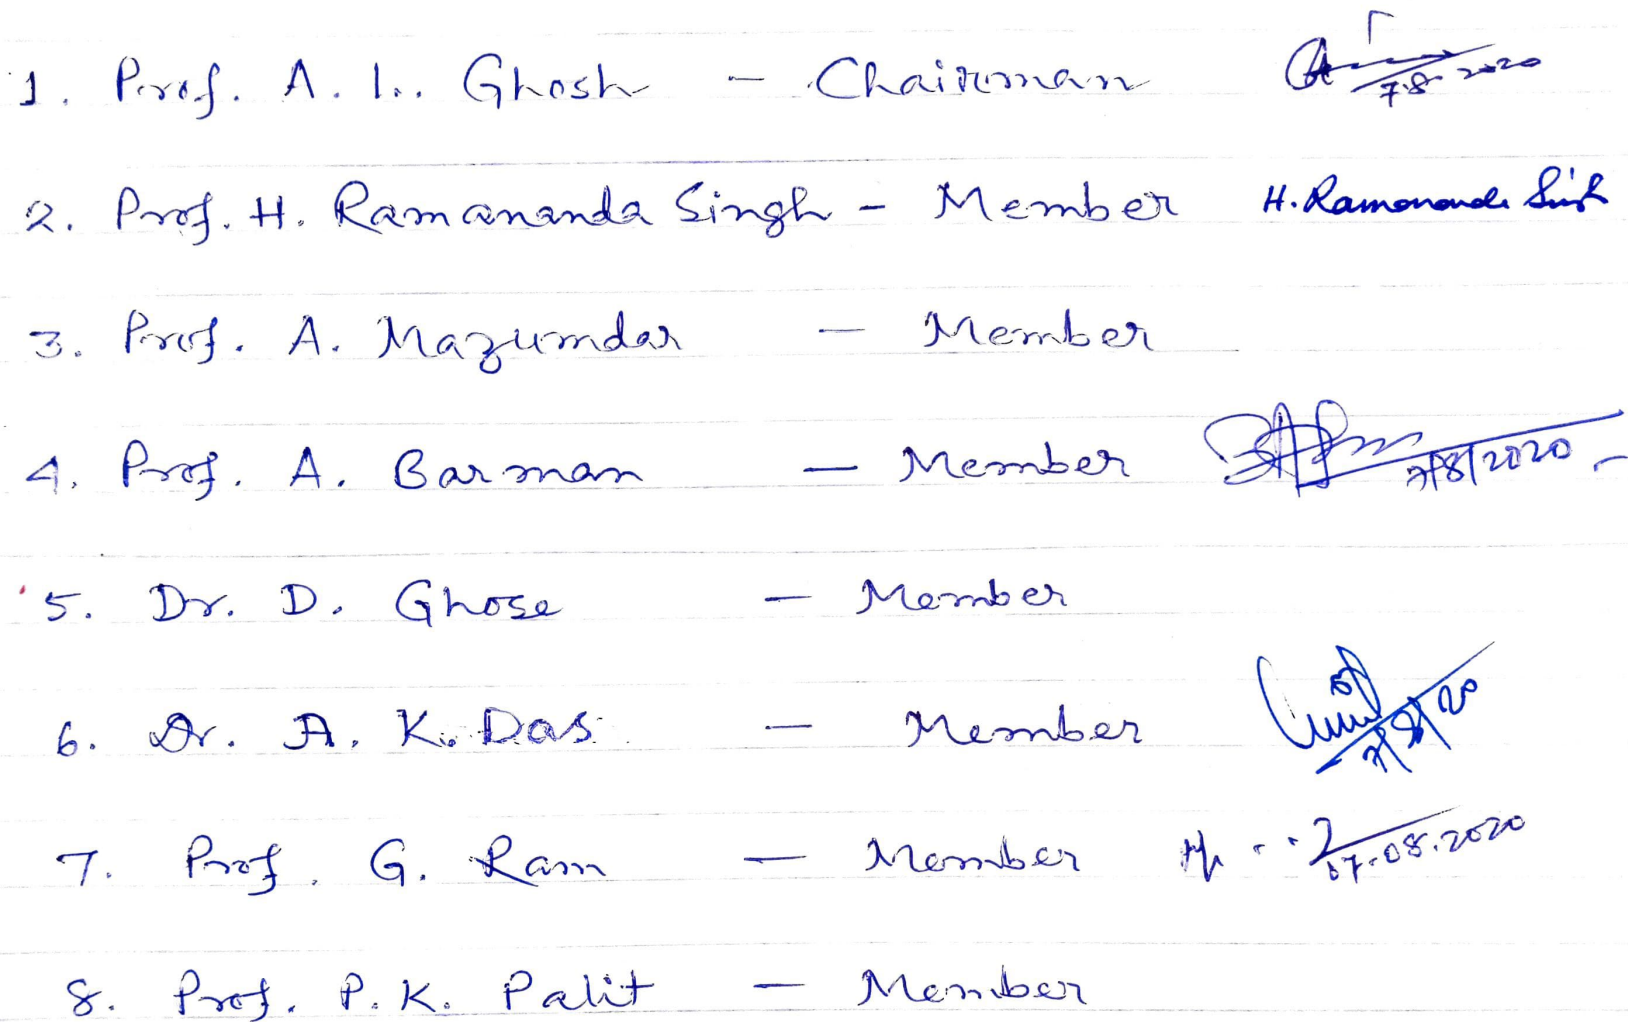 1. Prof. A. L. Ghosh - Chairman 7.8.2020
2. Prof. H. Ramananda Singh - Member H. Ramananda Singh
3. Prof. A. Mazumdar - Member
4. Prof. A. Barman - Member 7/8/2020
5. Dr. D. Ghose - Member
6. Dr. A. K. Das - Member 7/8/20
7. Prof. G. Ram - Member 07.08.2020
8. Prof. P. K. Palit - Member